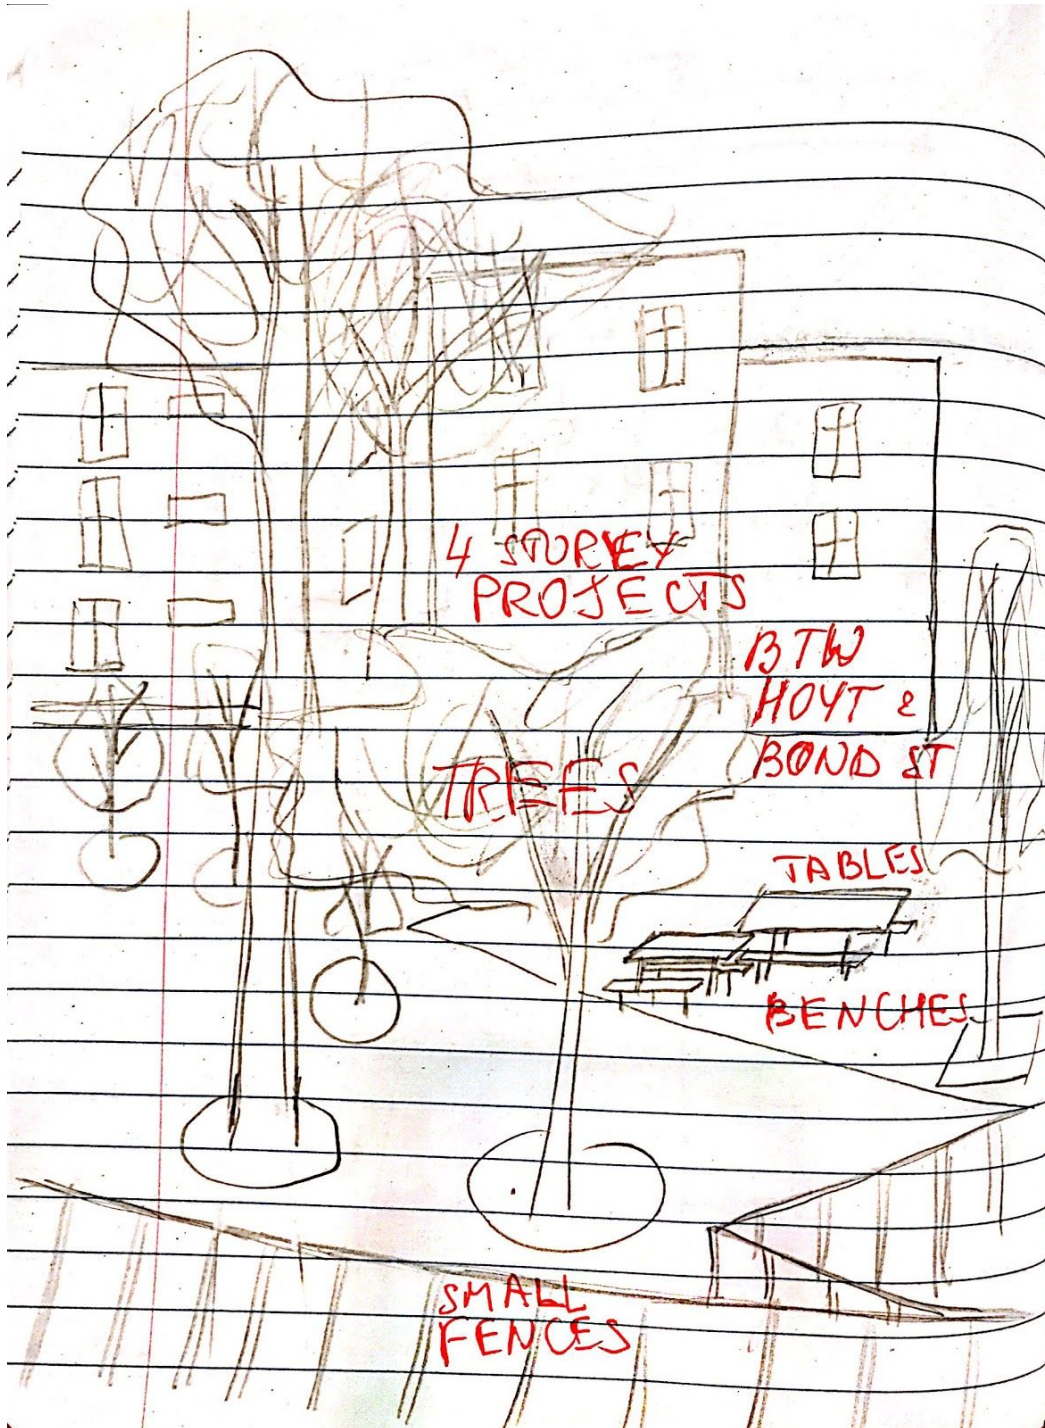 4 STOREY
PROJECTS
BTW
HOYT &
BOND ST
TREES
TABLES
BENCHES
SMALL
FENCES